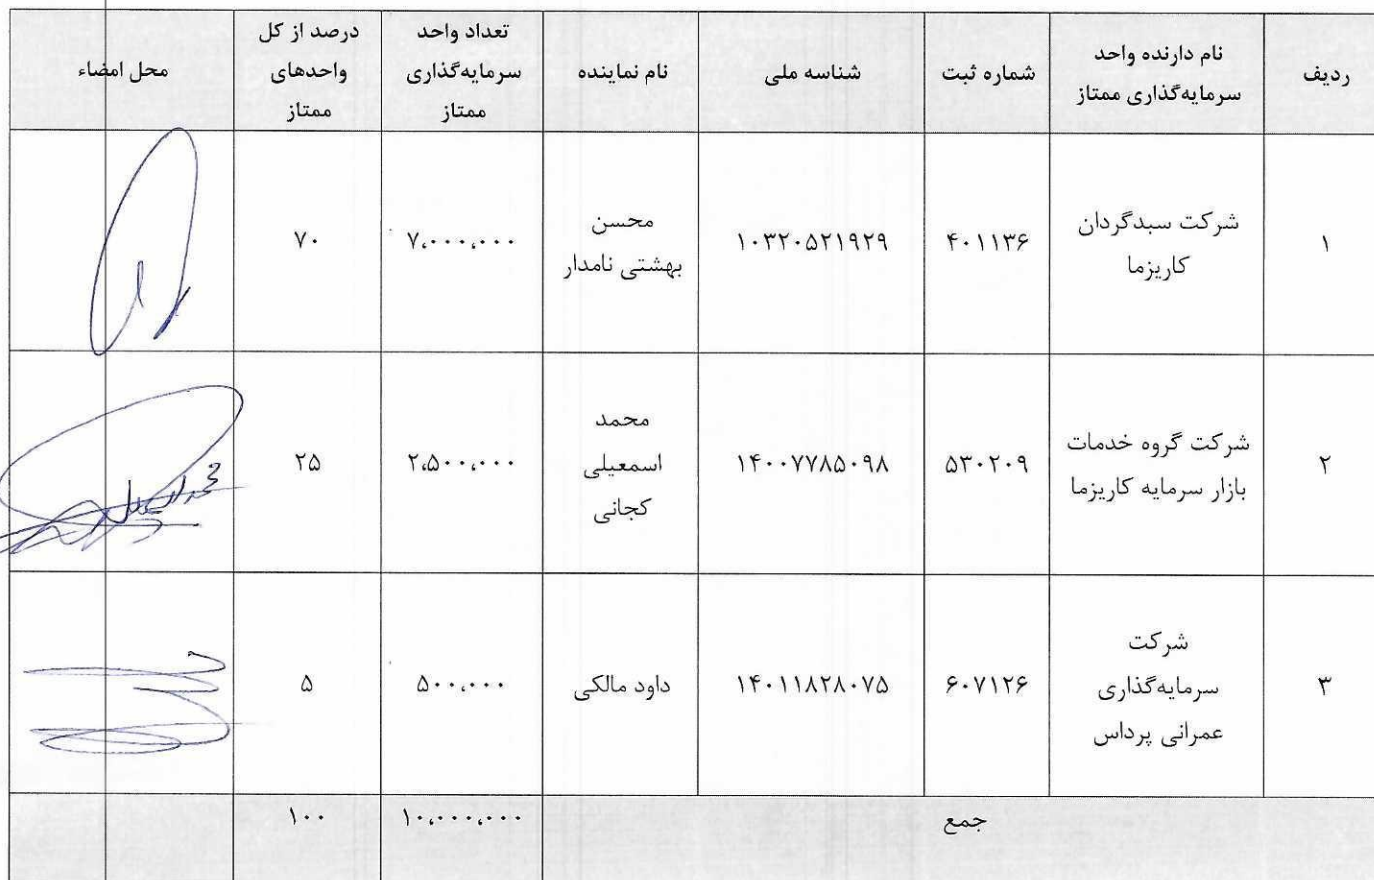 ردیف
نام دارنده واحد
سرمایه‌گذاری ممتاز
شماره ثبت
شناسه ملی
نام نماینده
تعداد واحد
سرمایه‌گذاری
ممتاز
درصد از کل
واحدهای
ممتاز
محل امضاء
۱
شرکت سبدگردان
کاریزما
۴۰۱۱۳۶
۱۰۳۲۰۵۲۱۹۲۹
محسن
بهشتی نامدار
۷،۰۰۰،۰۰۰
۷۰
۲
شرکت گروه خدمات
بازار سرمایه کاریزما
۵۳۰۲۰۹
۱۴۰۰۷۷۸۵۰۹۸
محمد
اسمعیلی
کجانی
۲،۵۰۰،۰۰۰
۲۵
۳
شرکت
سرمایه‌گذاری
عمرانی پرداس
۶۰۷۱۲۶
۱۴۰۱۱۸۲۸۰۷۵
داود مالکی
۵۰۰،۰۰۰
۵
جمع
۱۰،۰۰۰،۰۰۰
۱۰۰